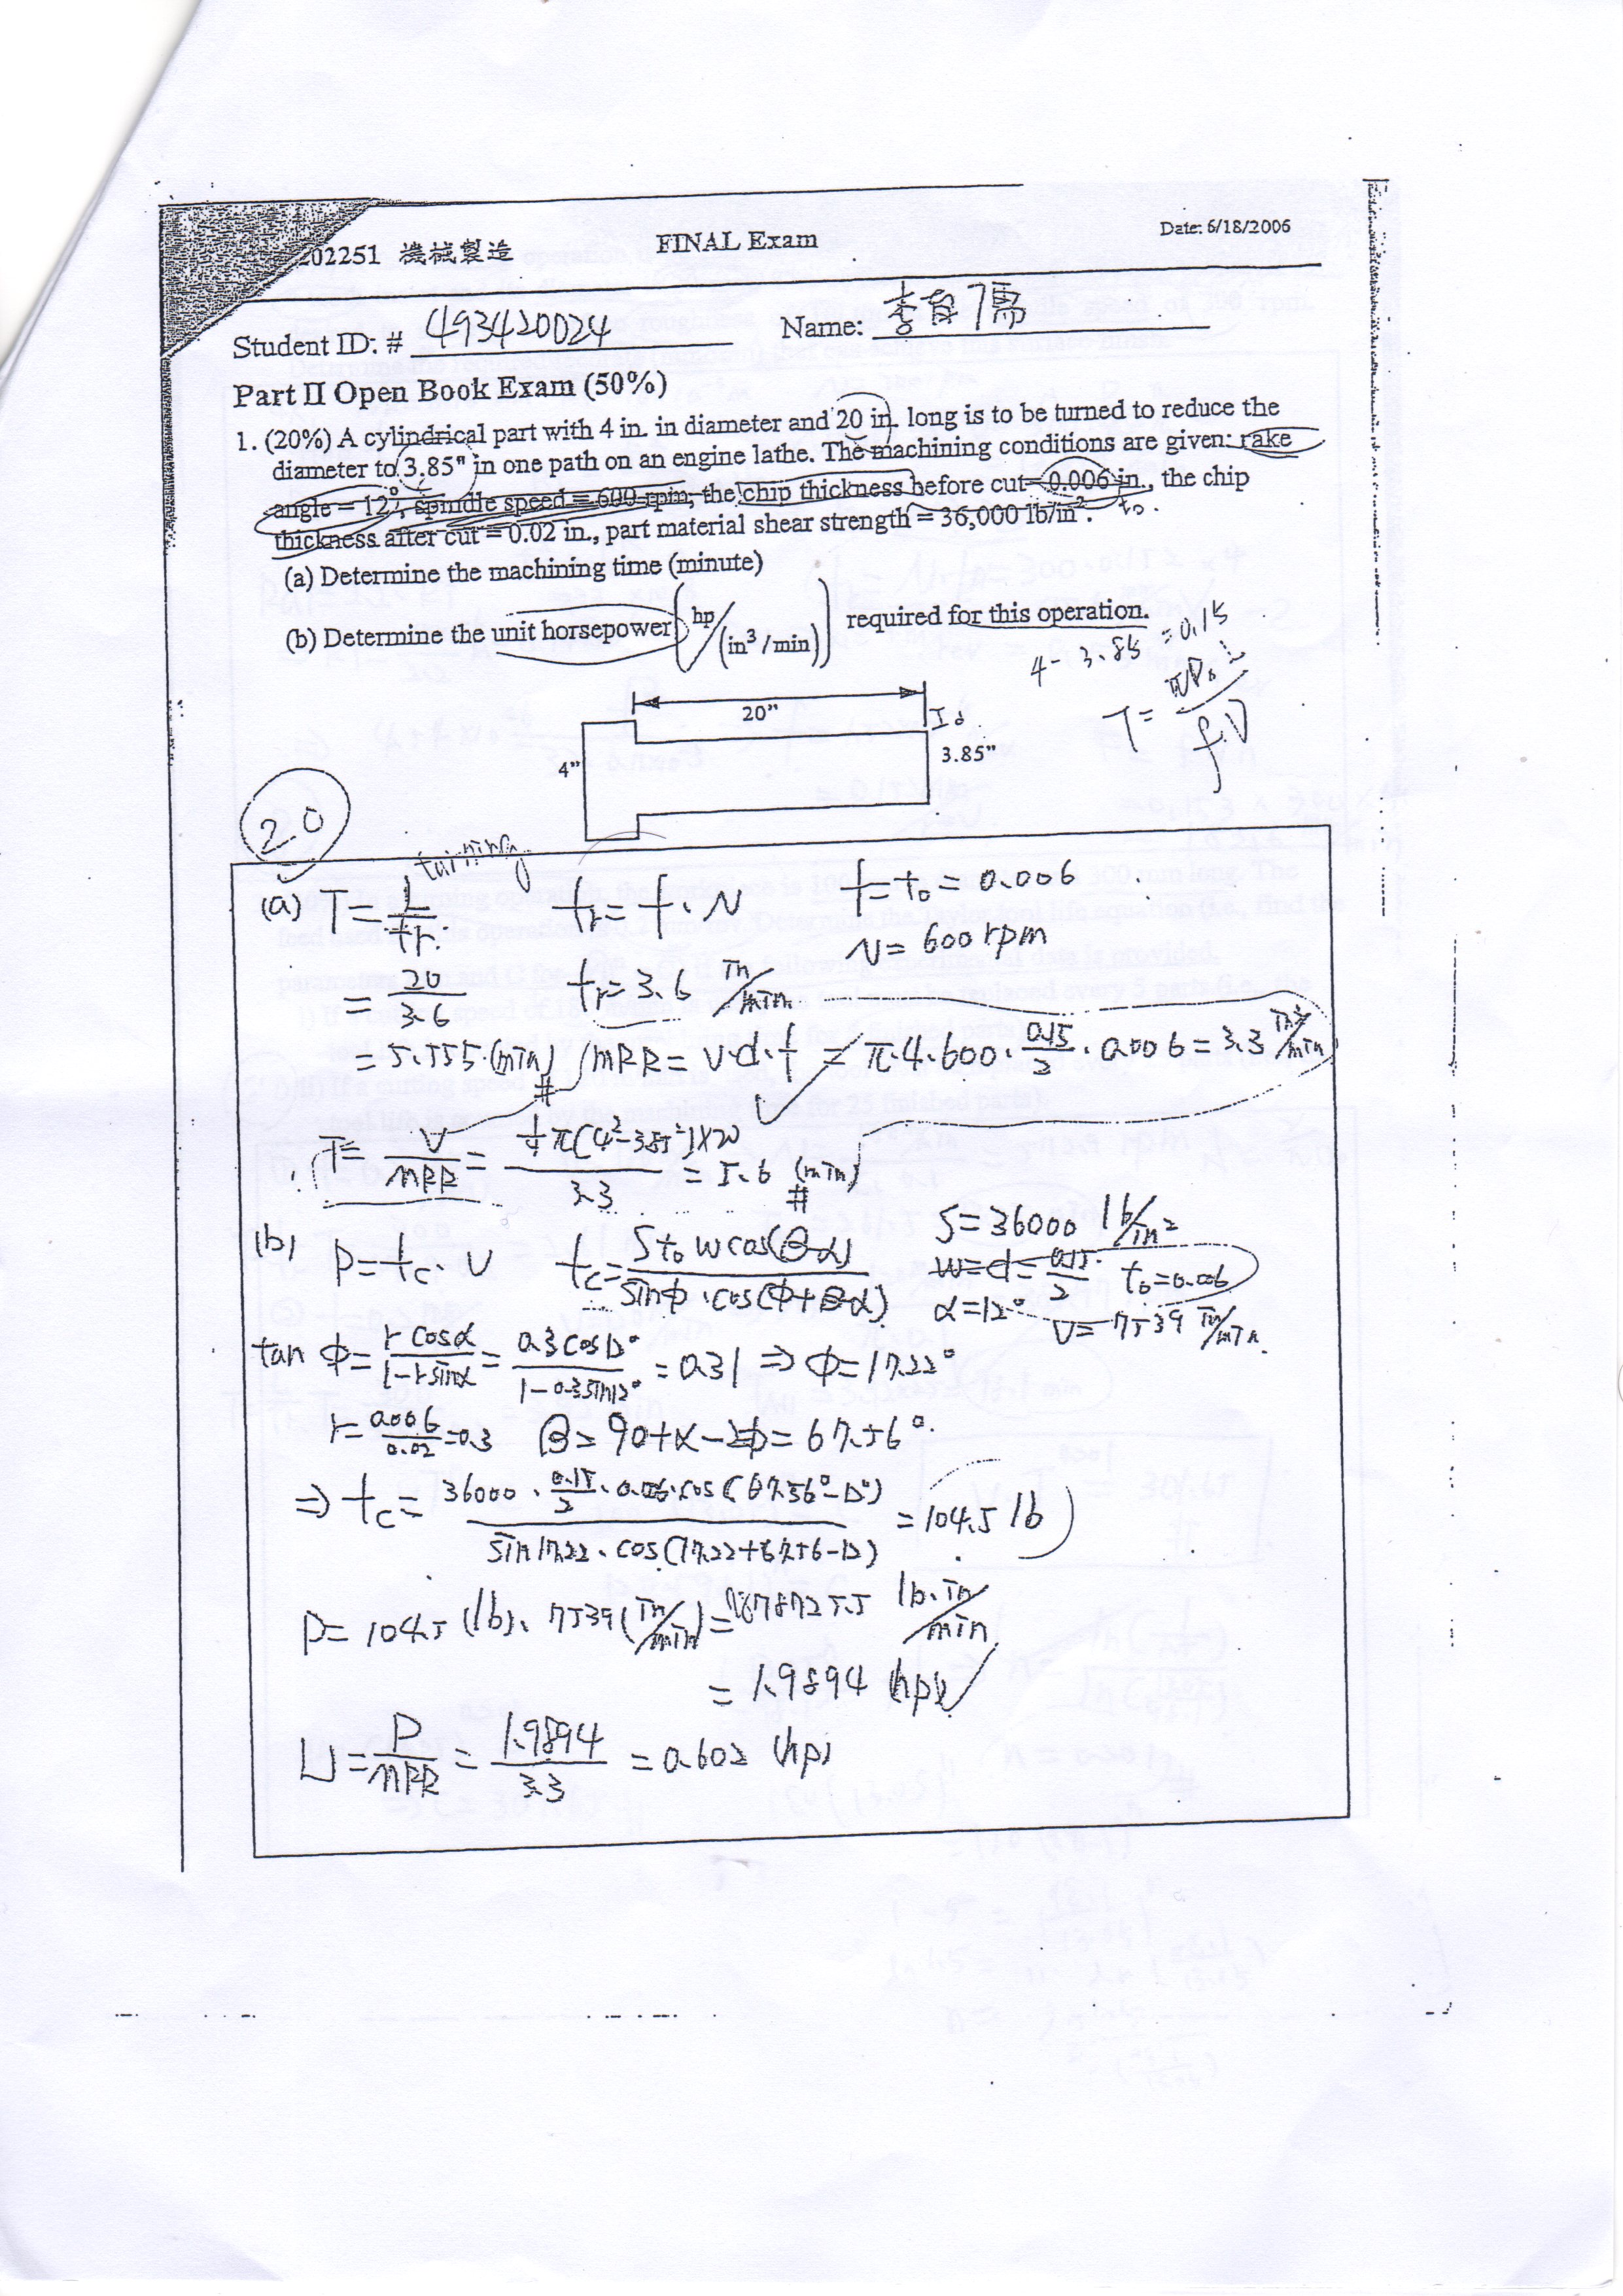 02251 機械製造 FINAL Exam Date: 6/18/2006
Student ID: # 493420024 Name: 李育儒
Part II Open Book Exam (50%)
1. (20%) A cylindrical part with 4 in. in diameter and 20 in. long is to be turned to reduce the
diameter to 3.85" in one path on an engine lathe. The machining conditions are given: rake
angle = 12°, spindle speed = 600 rpm, the chip thickness before cut = 0.006 in., the chip
thickness after cut = 0.02 in., part material shear strength = 36,000 lb/in². t₀.
(a) Determine the machining time (minute)
(b) Determine the unit horsepower (hp/(in³/min)) required for this operation.
4 - 3.85 = 0.15
T = πD₀L / fV
20"
I d
4"
3.85"
20
turning
(a) T = L/fr. fr = f · N f = t₀ = 0.006
N = 600 rpm
= 20/3.6 fr = 3.6 in/min
= 5.555 (min) # MRR = v·d·f = π·4·600·0.15/2·0.006 = 3.3 in³/min
T = V/MRR = ¼π(4²-3.85²)×20 / 3.3 = 5.6 (min) #
S = 36000 lb/in²
(b) P = fc · V fc = S t₀ w cos(β-α) / sinφ · cos(φ+β-α) w = d = 0.15/2 t₀ = 0.006
α = 12° V = 7539 in/min
tan φ = r cosα / 1-r sinα = 0.3 cos12° / 1-0.3 sin12° = 0.31 ⇒ φ = 17.22°
r = 0.006/0.02 = 0.3 β = 90+α-2φ = 67.56°
⇒ fc = 36000 · 0.15/2 · 0.006 · cos(67.56°-12°) / sin17.22 · cos(17.22+67.56-12) = 104.5 lb
P = 104.5 (lb) · 7539 (in/min) = 787825.5 lb·in/min
= 1.9894 (hp)
U = P/MRR = 1.9894/3.3 = 0.602 (hp)